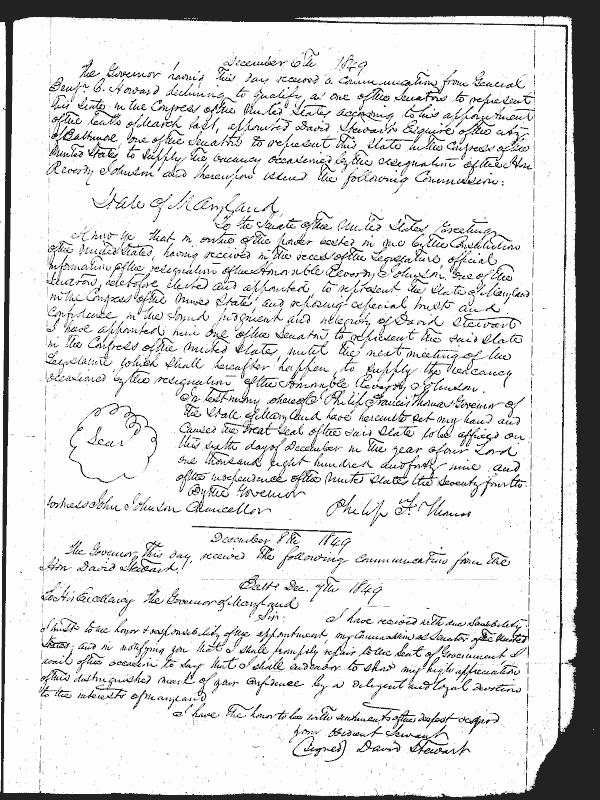 December 6th 1849
The Governor having this day received a Communication from General
Benjn C. Howard declining to qualify as one of the Senators to represent
this State in the Congress of the United States according to his appointment
of the tenth of March last, appointed David Stewart Esquire of the city
of Baltimore, one of the Senators to represent this State in the Congress of the
United States, to supply the vacancy occasioned by the resignation of the Hon
Reverdy Johnson and hereupon issued the following Commission:
State of Maryland
To the Senate of the United States, Greeting
Know ye that in virtue of the power vested in me by the Constitution
of the United States, having received in the recess of the Legislature official
information of the resignation of the Honorable Reverdy Johnson, one of the
Senators, heretofore elected and appointed to represent the State of Maryland
in the Congress of the United States, and reposing especial trust and
Confidence, in the sound judgment and integrity of David Stewart
I have appointed him one of the Senators to represent the said State
in the Congress of the United States, until the next meeting of the
Legislature, which shall hereafter happen, to supply the Vacancy
occasioned by the resignation of the Honorable Reverdy Johnson.
In testimony whereof I Philip Francis Thomas Governor of
the State of Maryland have hereunto set my hand and
Caused the Great Seal of the said State to be affixed on
this sixth day of December in the year of our Lord
one thousand eight hundred and forty nine, and
of the independence of the United States the Seventy fourth
Seal
By the Governor
Witness John Johnson Chancellor Philip F. Thomas
December 8th 1849
The Governor, this day, received the following Communication from the
Hon David Stewart.
Balto Dec. 7th 1849
To His Excellency the Governor of Maryland
Sir: I have received with due Sensibility
I trust to the honor & responsibility of the appointment, my Commission as Senator of the United
States; and in notifying you that I shall promptly repair to the Seat of Government I
avail of the occasion to say that I shall endeavor to show my high appreciation
of this distinguished mark of your Confidence by a diligent and loyal devotion
to the interests of Maryland
I have the honor to be with sentiments of the deepest regard
your obedient Servant
(signed) David Stewart